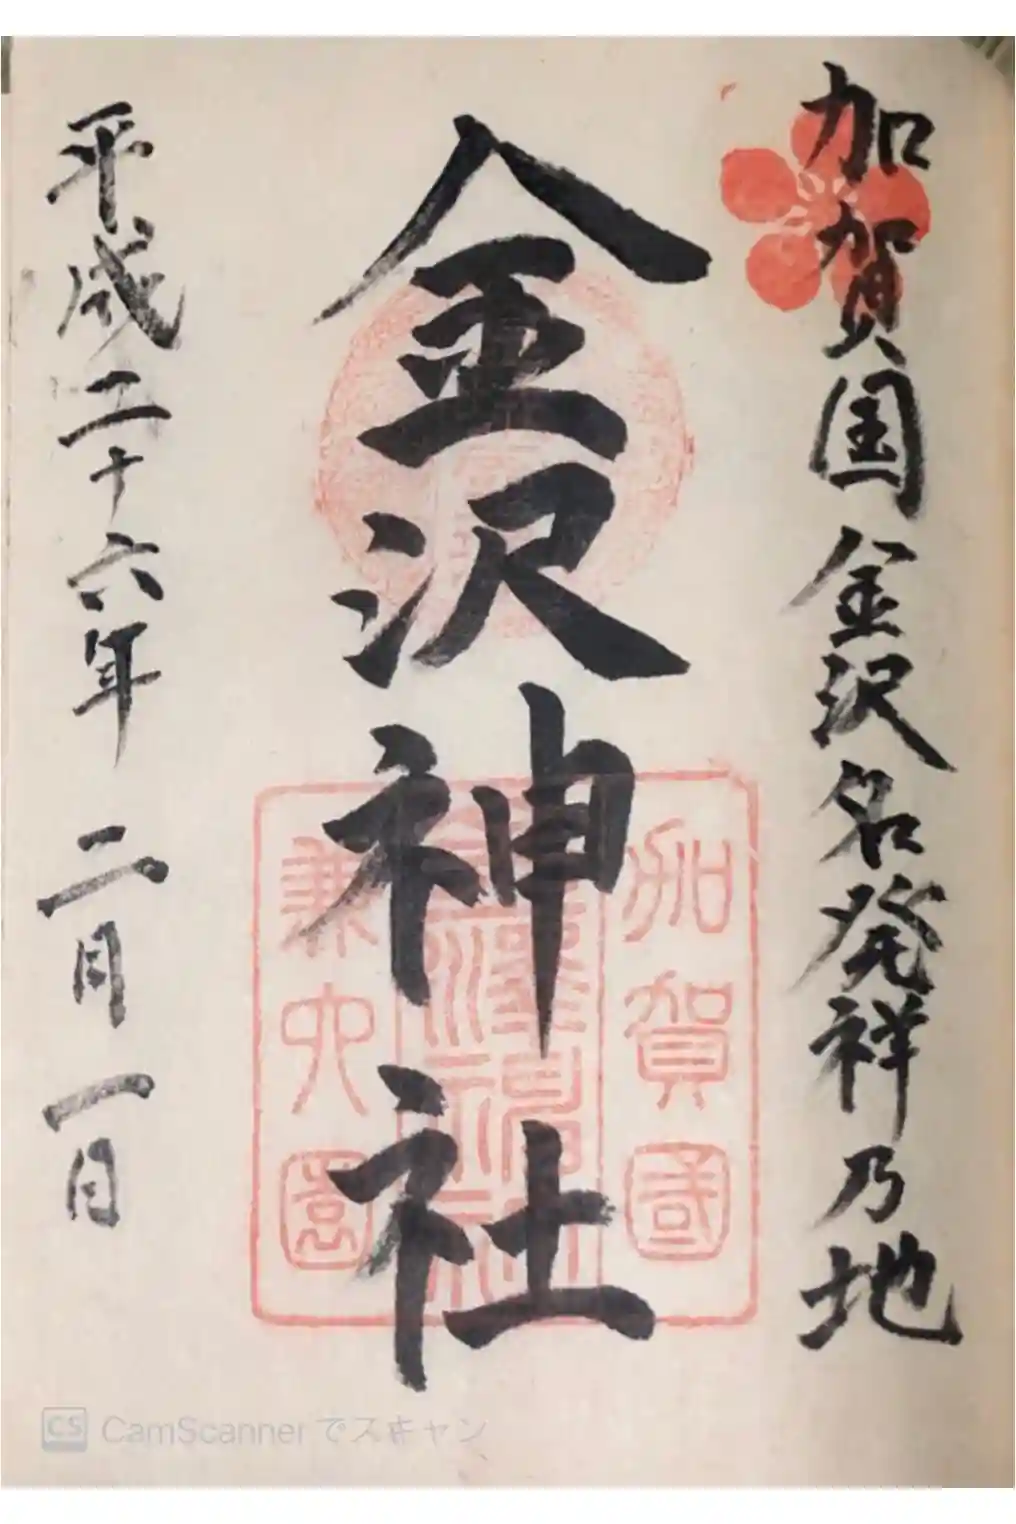 加賀国金沢名発祥乃地
金沢神社
平成二十六年 二月 一日
加賀國
金澤神社
兼六園
CS CamScanner でスキャン